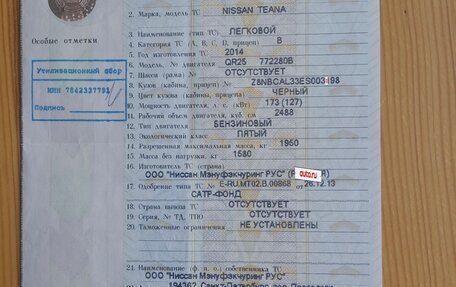 2. Марка, модель ТС NISSAN TEANA
3. Наименование (тип ТС) ЛЕГКОВОЙ
Особые отметки
4. Категория ТС (A, B, C, D, прицеп) B
5. Год изготовления ТС 2014
6. Модель, № двигателя QR25 772280B
7. Шасси (рама) № ОТСУТСТВУЕТ
Утилизационный сбор
8. Кузов (кабина, прицеп) № Z8NBCAL33ES003498
ИНН 7842337791
9. Цвет кузова (кабины, прицепа) ЧЕРНЫЙ
10. Мощность двигателя, л. с. (кВт) 173 (127)
Подпись
11. Рабочий объем двигателя, куб. см 2488
12. Тип двигателя БЕНЗИНОВЫЙ
13. Экологический класс ПЯТЫЙ
14. Разрешенная максимальная масса, кг 1950
15. Масса без нагрузки, кг 1580
16. Изготовитель ТС (страна)
ООО "Ниссан Мэнуфэкчуринг РУС" auto.ru
17. Одобрение типа ТС № E-RU.MT02.B.00868 от 26.12.13
САТР-ФОНД
18. Страна вывоза ТС ОТСУТСТВУЕТ
19. Серия, № ТД, ТПО ОТСУТСТВУЕТ
20. Таможенные ограничения НЕ УСТАНОВЛЕНЫ
21. Наименование (ф. и. о.) собственника ТС
ООО "Ниссан Мэнуфэкчуринг РУС"
194362, Санкт-Петербург